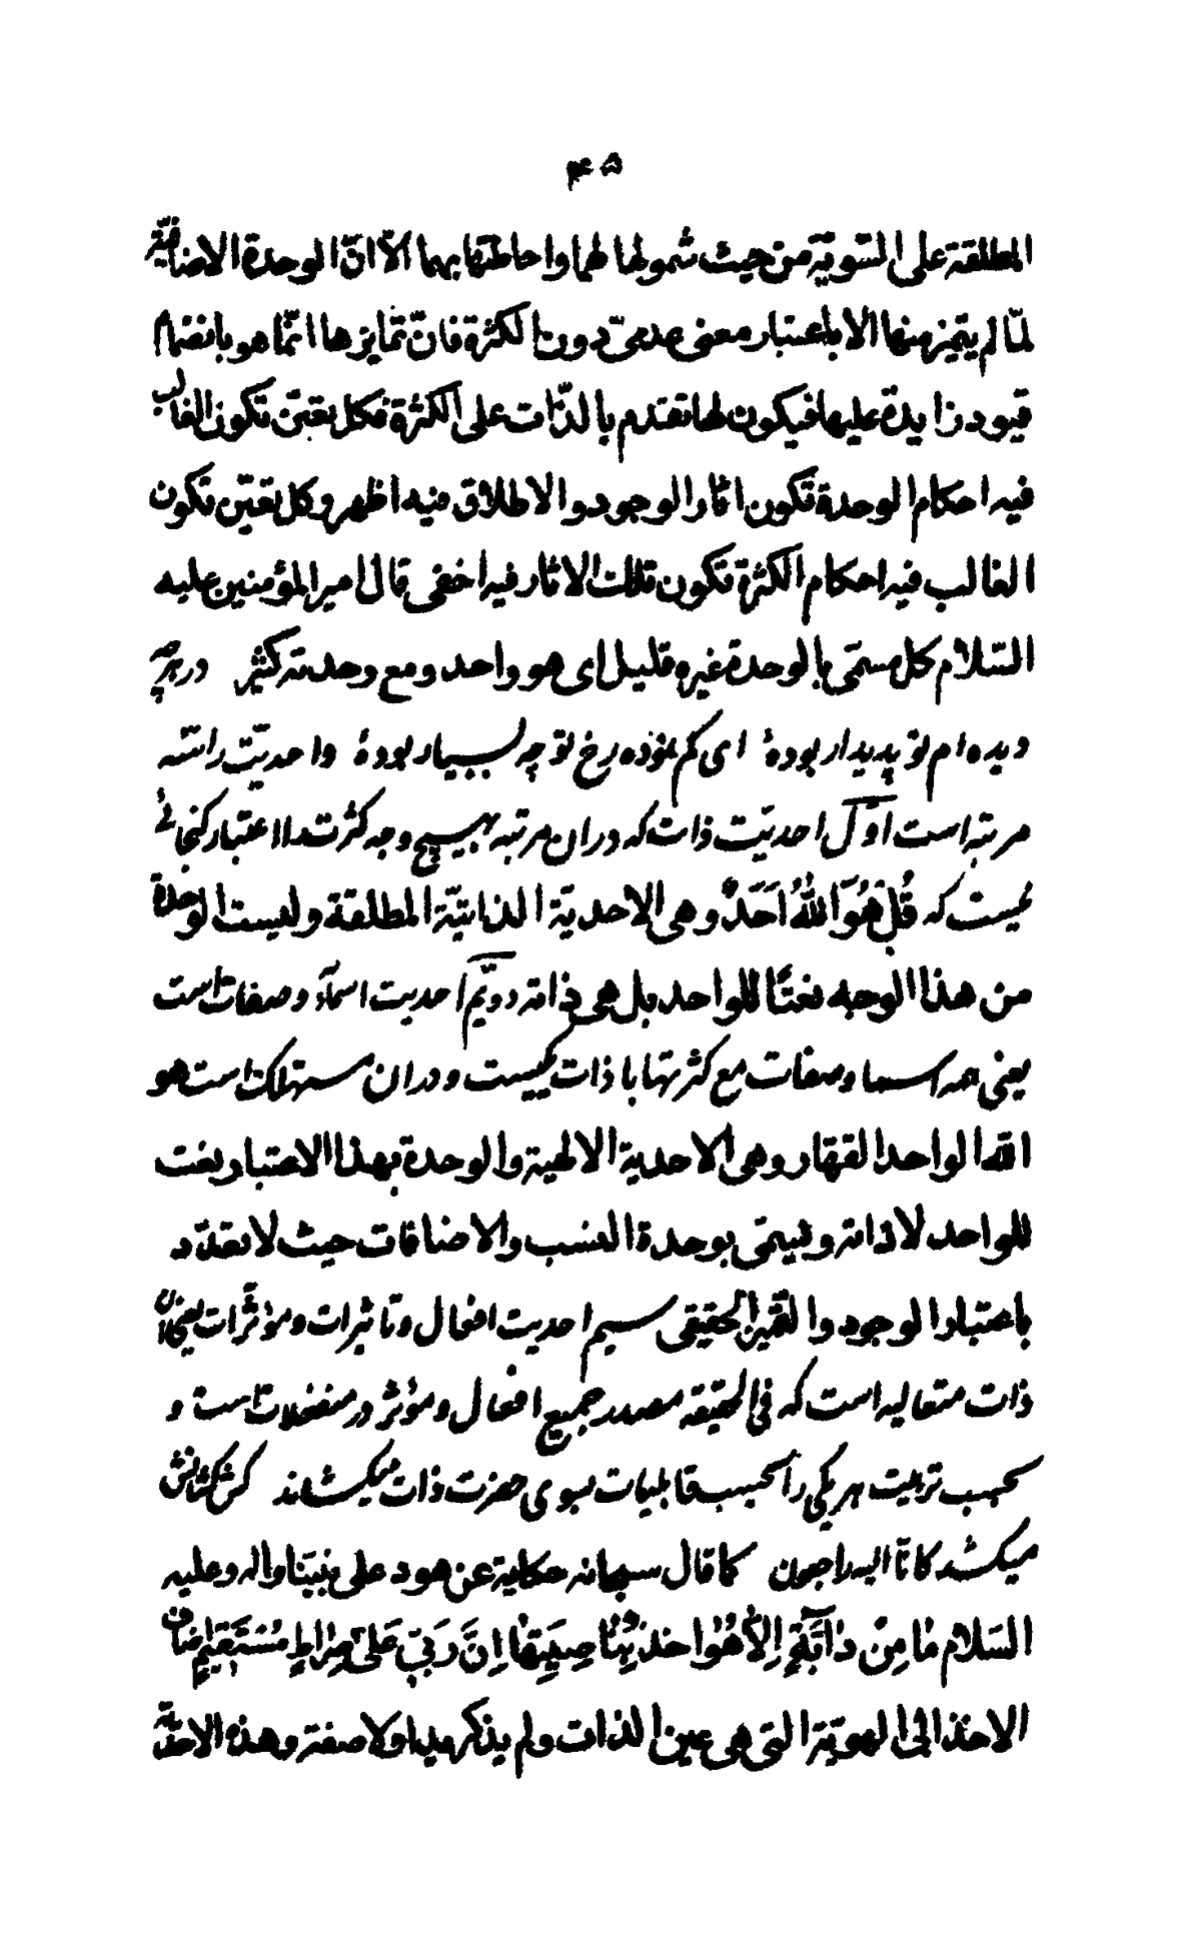 ۴۵
المطلقة على السّويّة من حيث شمولها لهما واحاطتها بهما الّا انّ الوحدة الاضافيّة
لمّا لم يتميّز منها الا باعتبار معنى عدمىّ دون الكثرة فانّ تمايزها انّما هو بانضمام
قيود زايدة عليها فيكون لها تقدم بالذّات على الكثرة فكل تعيّن تكون الغالب
فيه احكام الوحدة تكون اثار الوجود والاطلاق فيه اظهر وكل تعيّن تكون
الغالب فيه احكام الكثرة تكون تلك الاثار فيه اخفى قال امير المؤمنين عليه
السّلام كل مسمّى بالوحدة غيره قليل اى هو واحد ومع وحدته كثير در هرچه
ديده ام تو پديدار بودهٔ اى كم نموده رخ تو چه بسيار بودهٔ واحديّت را سه
مرتبه است اوّل احديّت ذات كه دران مرتبه بهيچ وجه كثرت را اعتبار كنجائى
نيست كه قُل هُوَ اللهُ اَحَدٌ وهى الاحديّة الذاتيّة المطلقة وليست الوحدة
من هذا الوجه نعتًا للواحد بل هى ذاته دويّم احديت اسمآء وصفات است
يعنى همه اسما وصفات مع كثرتها با ذات يكيست ودران مستهلك است هو
الله الواحد القهار وهى الاحدية الالهية والوحدة بهذا الاعتبار نعت
للواحد لا ذاته وتسمّى بوحدة النسب والاضافات حيث لا تعدّد
باعتبار الوجود والتّعيّن الحقيقى سيم احديت افعال وتاثيرات ومؤثّرات يعنى ان
ذات متعاليه است كه فى الحقيقه مصدر جميع افعال ومؤثر در منفعلات است و
بحسب تربيت هر يكى را بحسب قابليات بسوى حضرت ذات ميكشاند كش كشانش
ميكشد كانّا اليه راجعون كما قال سبحانه حكاية عن هود على نبيّنا واله وعليه
السّلام مٰا مِنْ دٰابَّةٍ اِلّٰا هُوَ اخذٌ بِنٰاصِيَتِهٰا اِنَّ رَبّى عَلىٰ صِرٰاطٍ مُسْتَقيمٍ اضاف
الاخذ الى الهويّة التى هى عين الذات ولم يذكر يدا ولا صفة وهذه الاحديّة